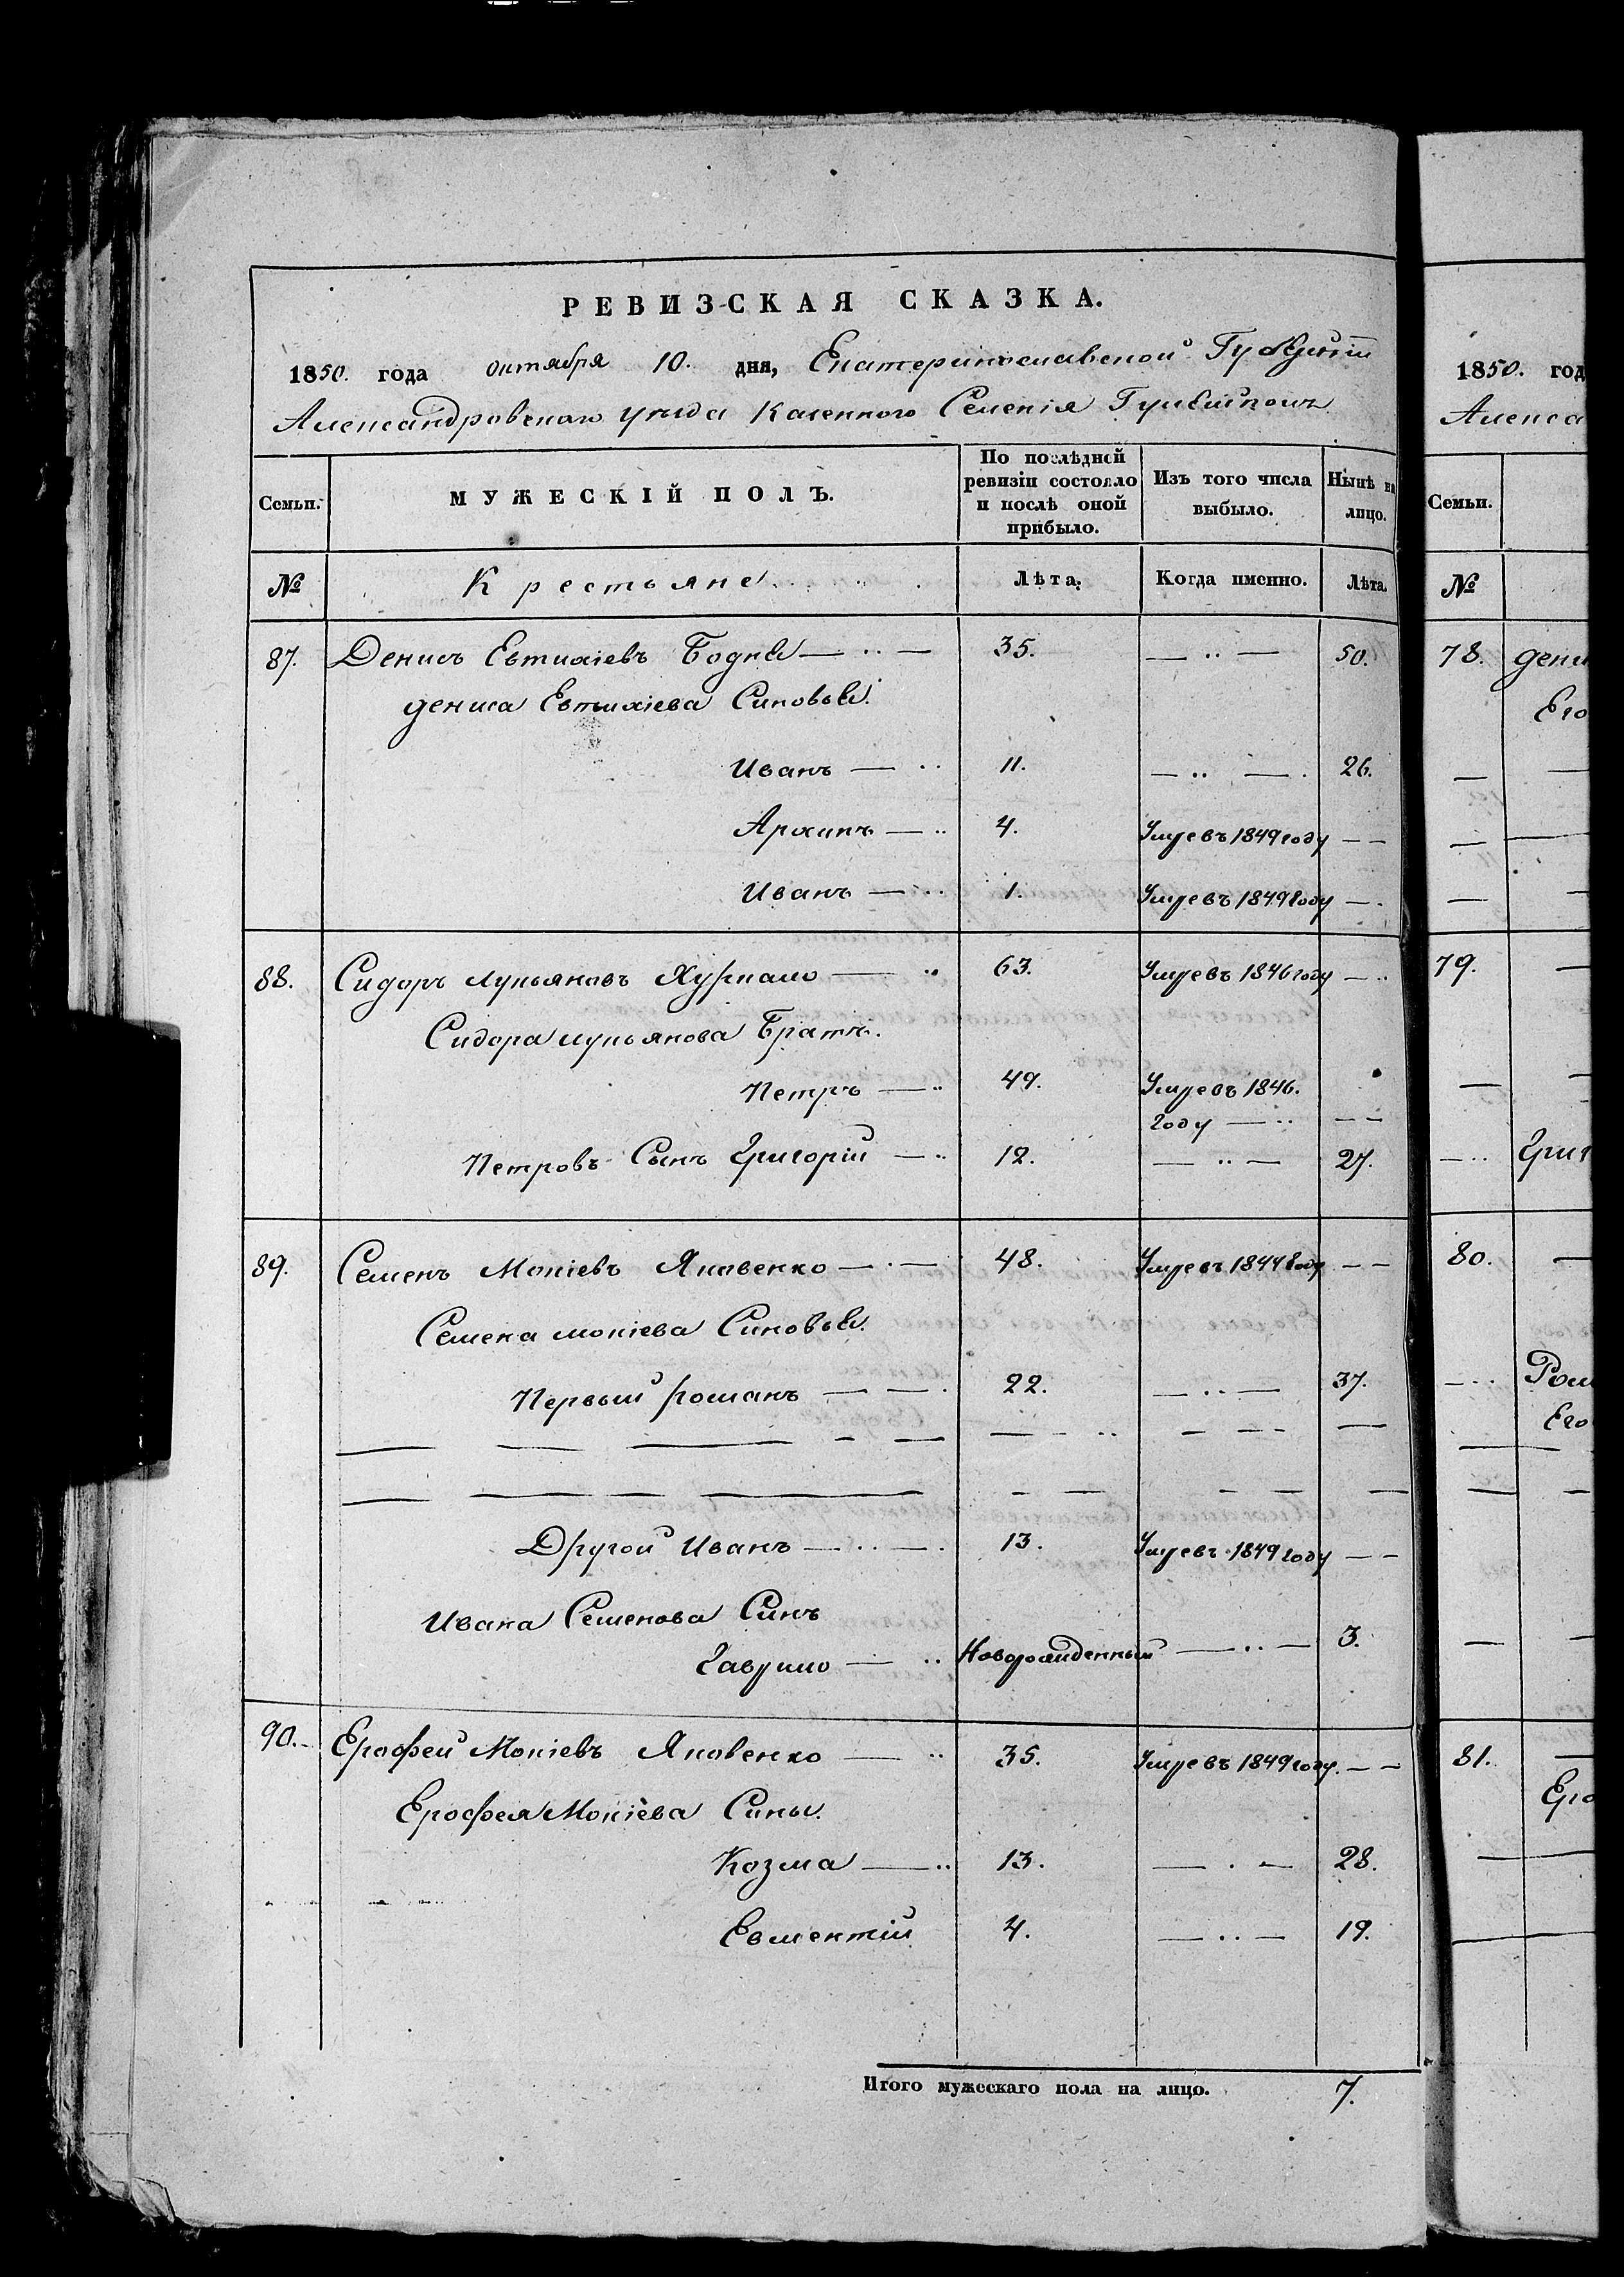 РЕВИЗСКАЯ СКАЗКА.
1850. года октября 10. дня, Екатеринославской Губерніи
Александровскаго уезда Казенного Селенія
Семьи. МУЖЕСКІЙ ПОЛЪ. По послѣдней ревизіи состояло и послѣ оной прибыло. Изъ того числа выбыло. Нынѣ на лицо.
№ Крестьяне Лѣта. Когда именно. Лѣта.
87. Денисъ Евтихіевъ 35. — 50.
Дениса Евтихіева Синовья.
Иванъ — 11. — 26.
Архипъ — 4. Умре въ 1849 году — —
Иванъ — 1. Умре въ 1849 году —
88. Сидоръ Лукьяновъ — 63. Умре въ 1846 году —
Сидора Лукьянова Братъ.
Петръ — 49. Умре въ 1846.
году — — —
Петровъ Сынъ Григорій — 12. — 27.
89. Семенъ Мокіевъ Яковенко — 48. Умре въ 1844 году — —
Семена Мокіева Синовья.
Первый Романъ — 22. — 37.
Другой Иванъ — 13. Умре въ 1849 году — —
Ивана Семенова Синъ
Гаврило — Новорожденный — 3.
90. Ерофей Мокіевъ Яковенко — 35. Умре въ 1849 году. — —
Ерофея Мокіева Сины.
Козма — 13. — 28.
4. — 19.
Итого мужескаго пола на лицо. 7.
1850. год
Алекса
Семьи.
№
78. Дени
Его
79.
Григ
80.
Ром
Его
81.
Еро